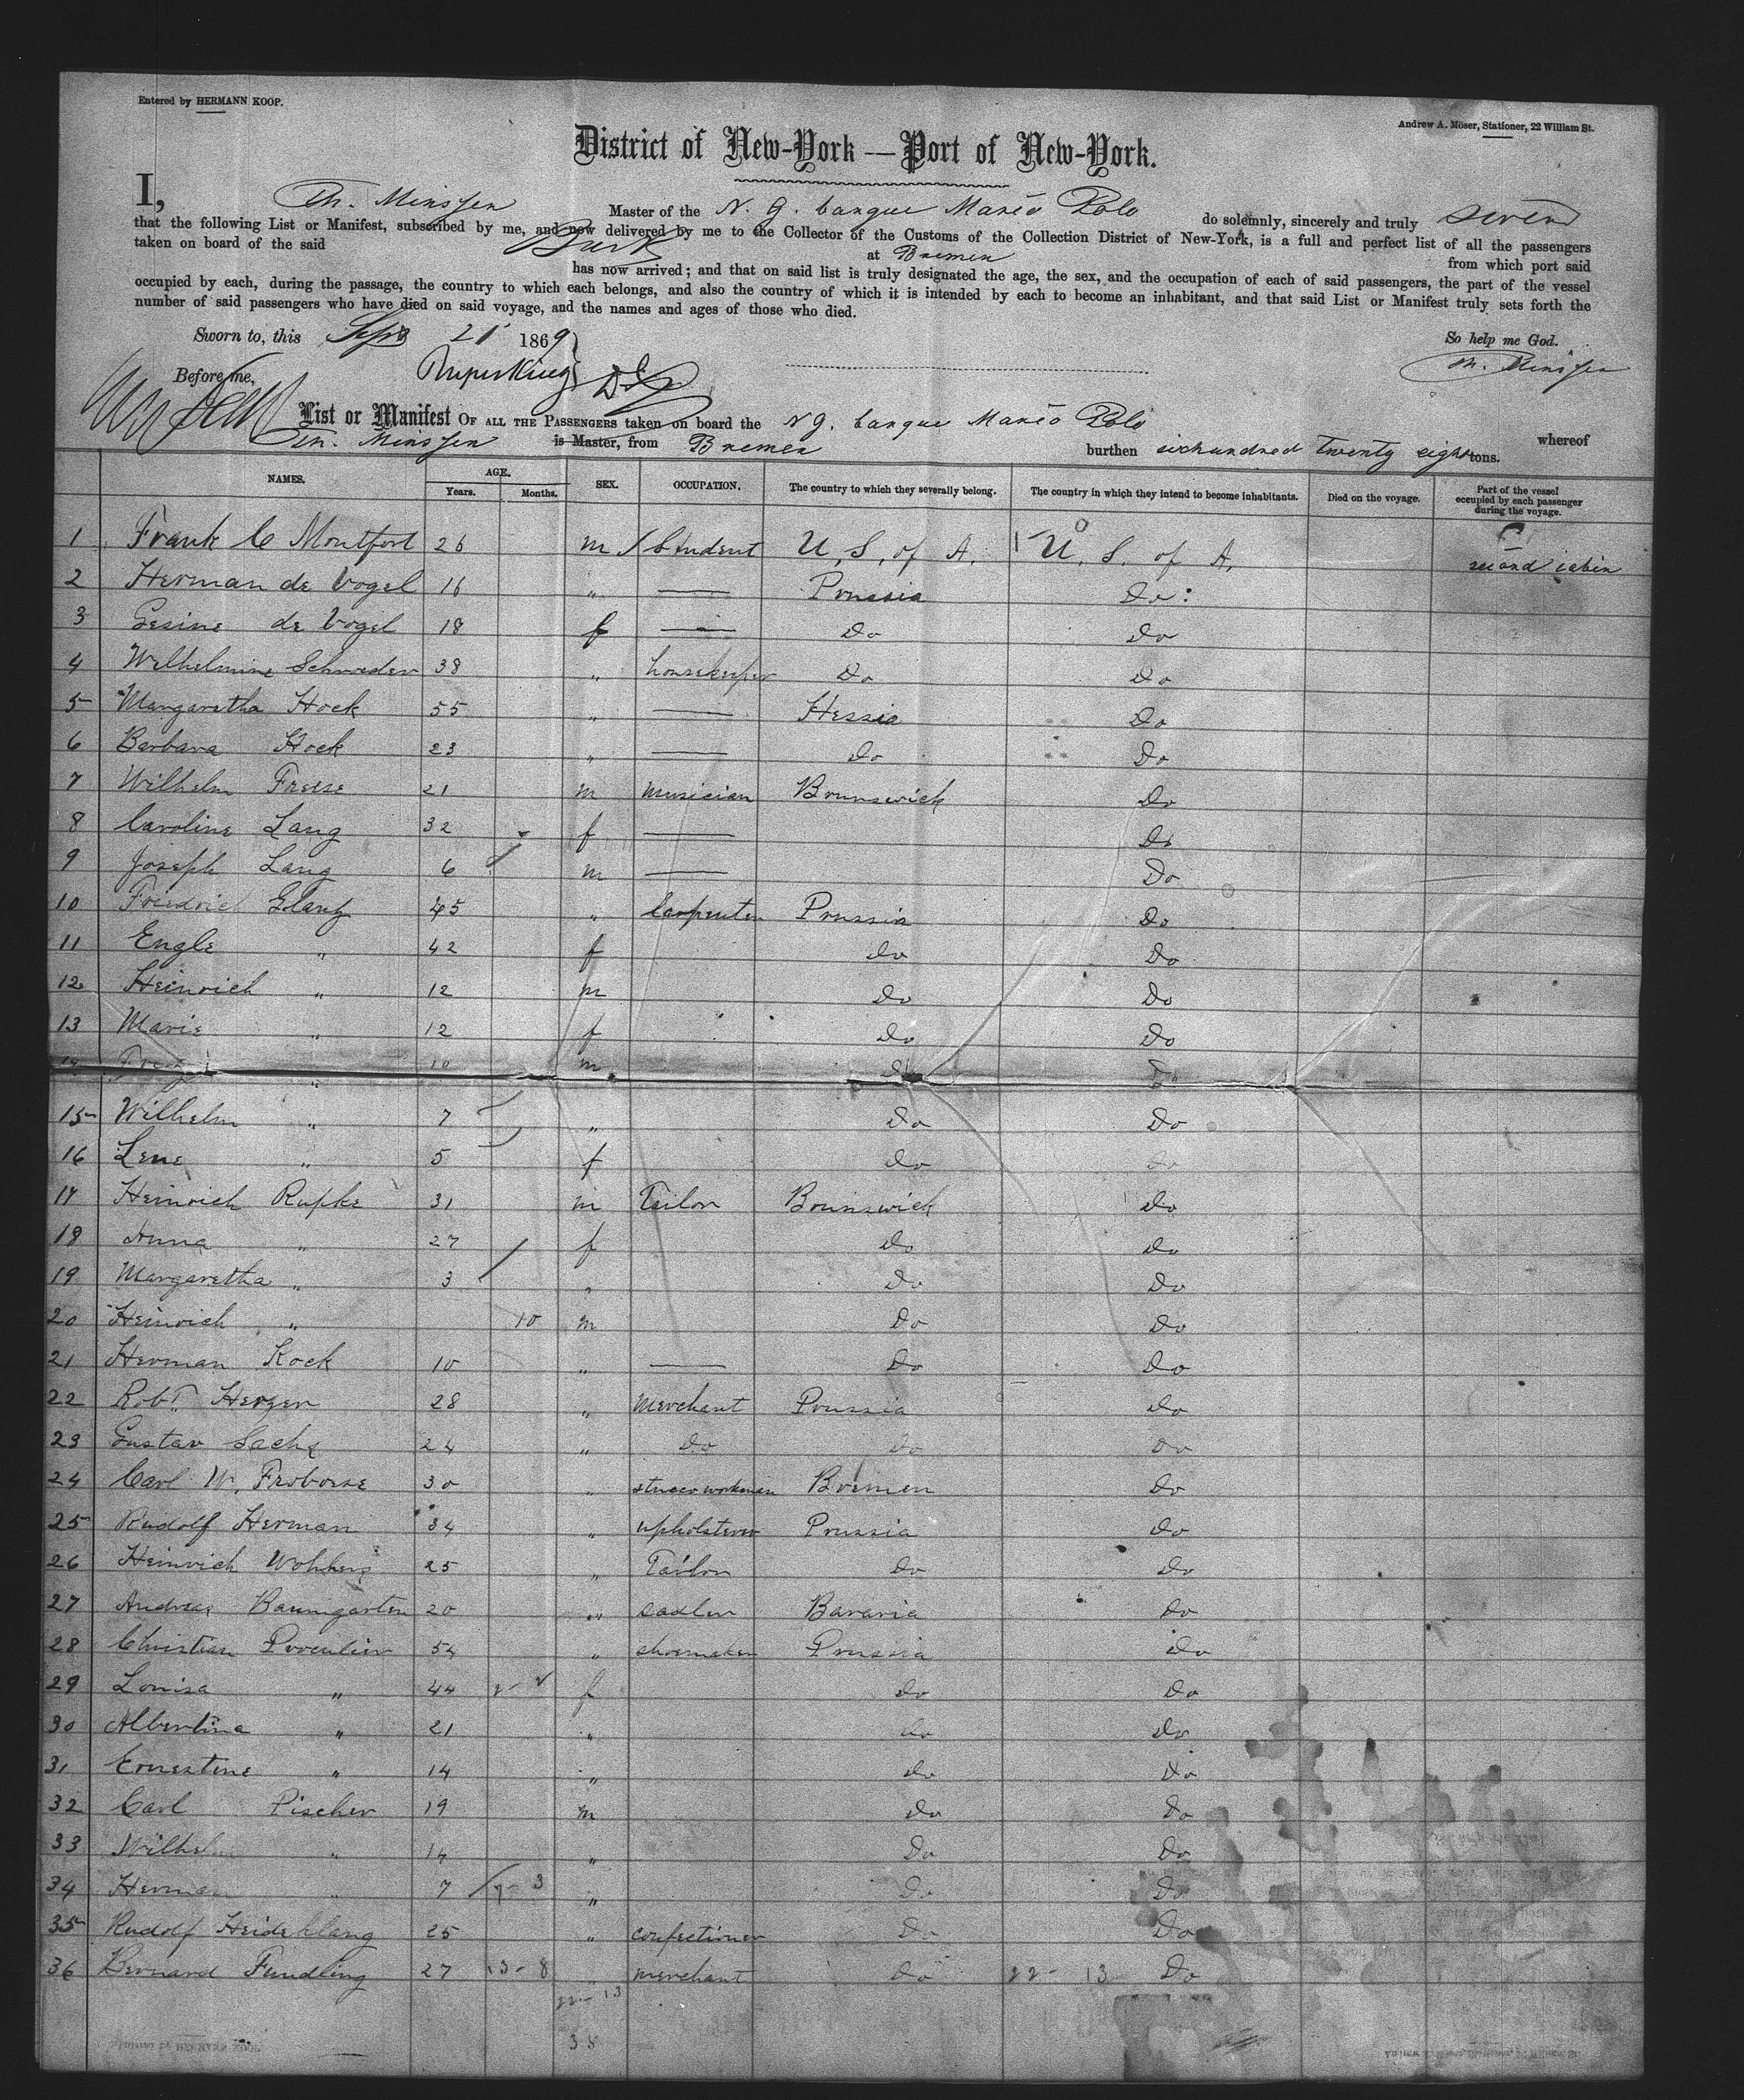 Entered by HERMANN KOOP.
Andrew A. Moser, Stationer, 22 William St.
District of New-York — Port of New-York.
I, Th. Minssen Master of the N. G. barque Marco Polo do solemnly, sincerely and truly swear
that the following List or Manifest, subscribed by me, and now delivered by me to the Collector of the Customs of the Collection District of New-York, is a full and perfect list of all the passengers
taken on board of the said Bark at Bremen from which port said
has now arrived; and that on said list is truly designated the age, the sex, and the occupation of each of said passengers, the part of the vessel
occupied by each, during the passage, the country to which each belongs, and also the country of which it is intended by each to become an inhabitant, and that said List or Manifest truly sets forth the
number of said passengers who have died on said voyage, and the names and ages of those who died.
Sworn to, this Sept 21 1869 So help me God.
Before me, Th. Minssen
List or Manifest OF ALL THE PASSENGERS taken on board the N G. barque Marco Polo whereof
Th. Minssen is Master, from Bremen burthen sixhundred twenty eight tons.
NAMES. AGE. Years. Months. SEX. OCCUPATION. The country to which they severally belong. The country in which they intend to become inhabitants. Died on the voyage. Part of the vessel occupied by each passenger during the voyage.
1 Frank C Montfort 26 m Student U. S. of A. U. S. of A. second cabin
2 Herman de Vogel 16 " — Prussia Do
3 Gesine de Vogel 18 f — Do Do
4 Wilhelmine Schroeder 38 " housekeeper Do Do
5 Margaretha Hock 55 " — Hessia Do
6 Barbara Hock 23 " — Do Do
7 Wilhelm Freise 21 m musician Brunswick Do
8 Caroline Lang 32 f — Do
9 Joseph Lang 6 m — Do
10 Friedrich Glantz 45 " Carpenter Prussia Do
11 Engle " 42 f Do Do
12 Heinrich " 12 m Do Do
13 Marie " 12 f Do Do
14 " 10 m Do Do
15 Wilhelm " 7 " Do Do
16 Lene " 5 f Do Do
17 Heinrich Rupke 31 m Tailor Brunswick Do
18 Anna " 27 f Do Do
19 Margaretha " 3 " Do Do
20 Heinrich " 10 m Do Do
21 Herman Kock 10 " — Do Do
22 Robt. Herzer 28 " merchant Prussia Do
23 Gustav Sachs 24 " Do Do Do
24 Carl W. Froboese 30 " stucco workman Bremen Do
25 Rudolf Herman 34 " upholsterer Prussia Do
26 Heinrich Wohlers 25 " Tailor Do Do
27 Andreas Baumgarten 20 " sadler Bavaria Do
28 Christian 54 " shoemaker Prussia Do
29 Louisa " 44 f Do Do
30 Albertina " 21 " Do Do
31 Ernestine " 14 " Do Do
32 Carl Pischer 19 m Do Do
33 Wilhelm " 14 " Do Do
34 Herman " 7 " Do Do
35 Rudolf Heideklang 25 " confectioner Do Do
36 Bernard Fundling 27 13 - 8 " merchant Do 22 - 13 Do
22 - 13
38